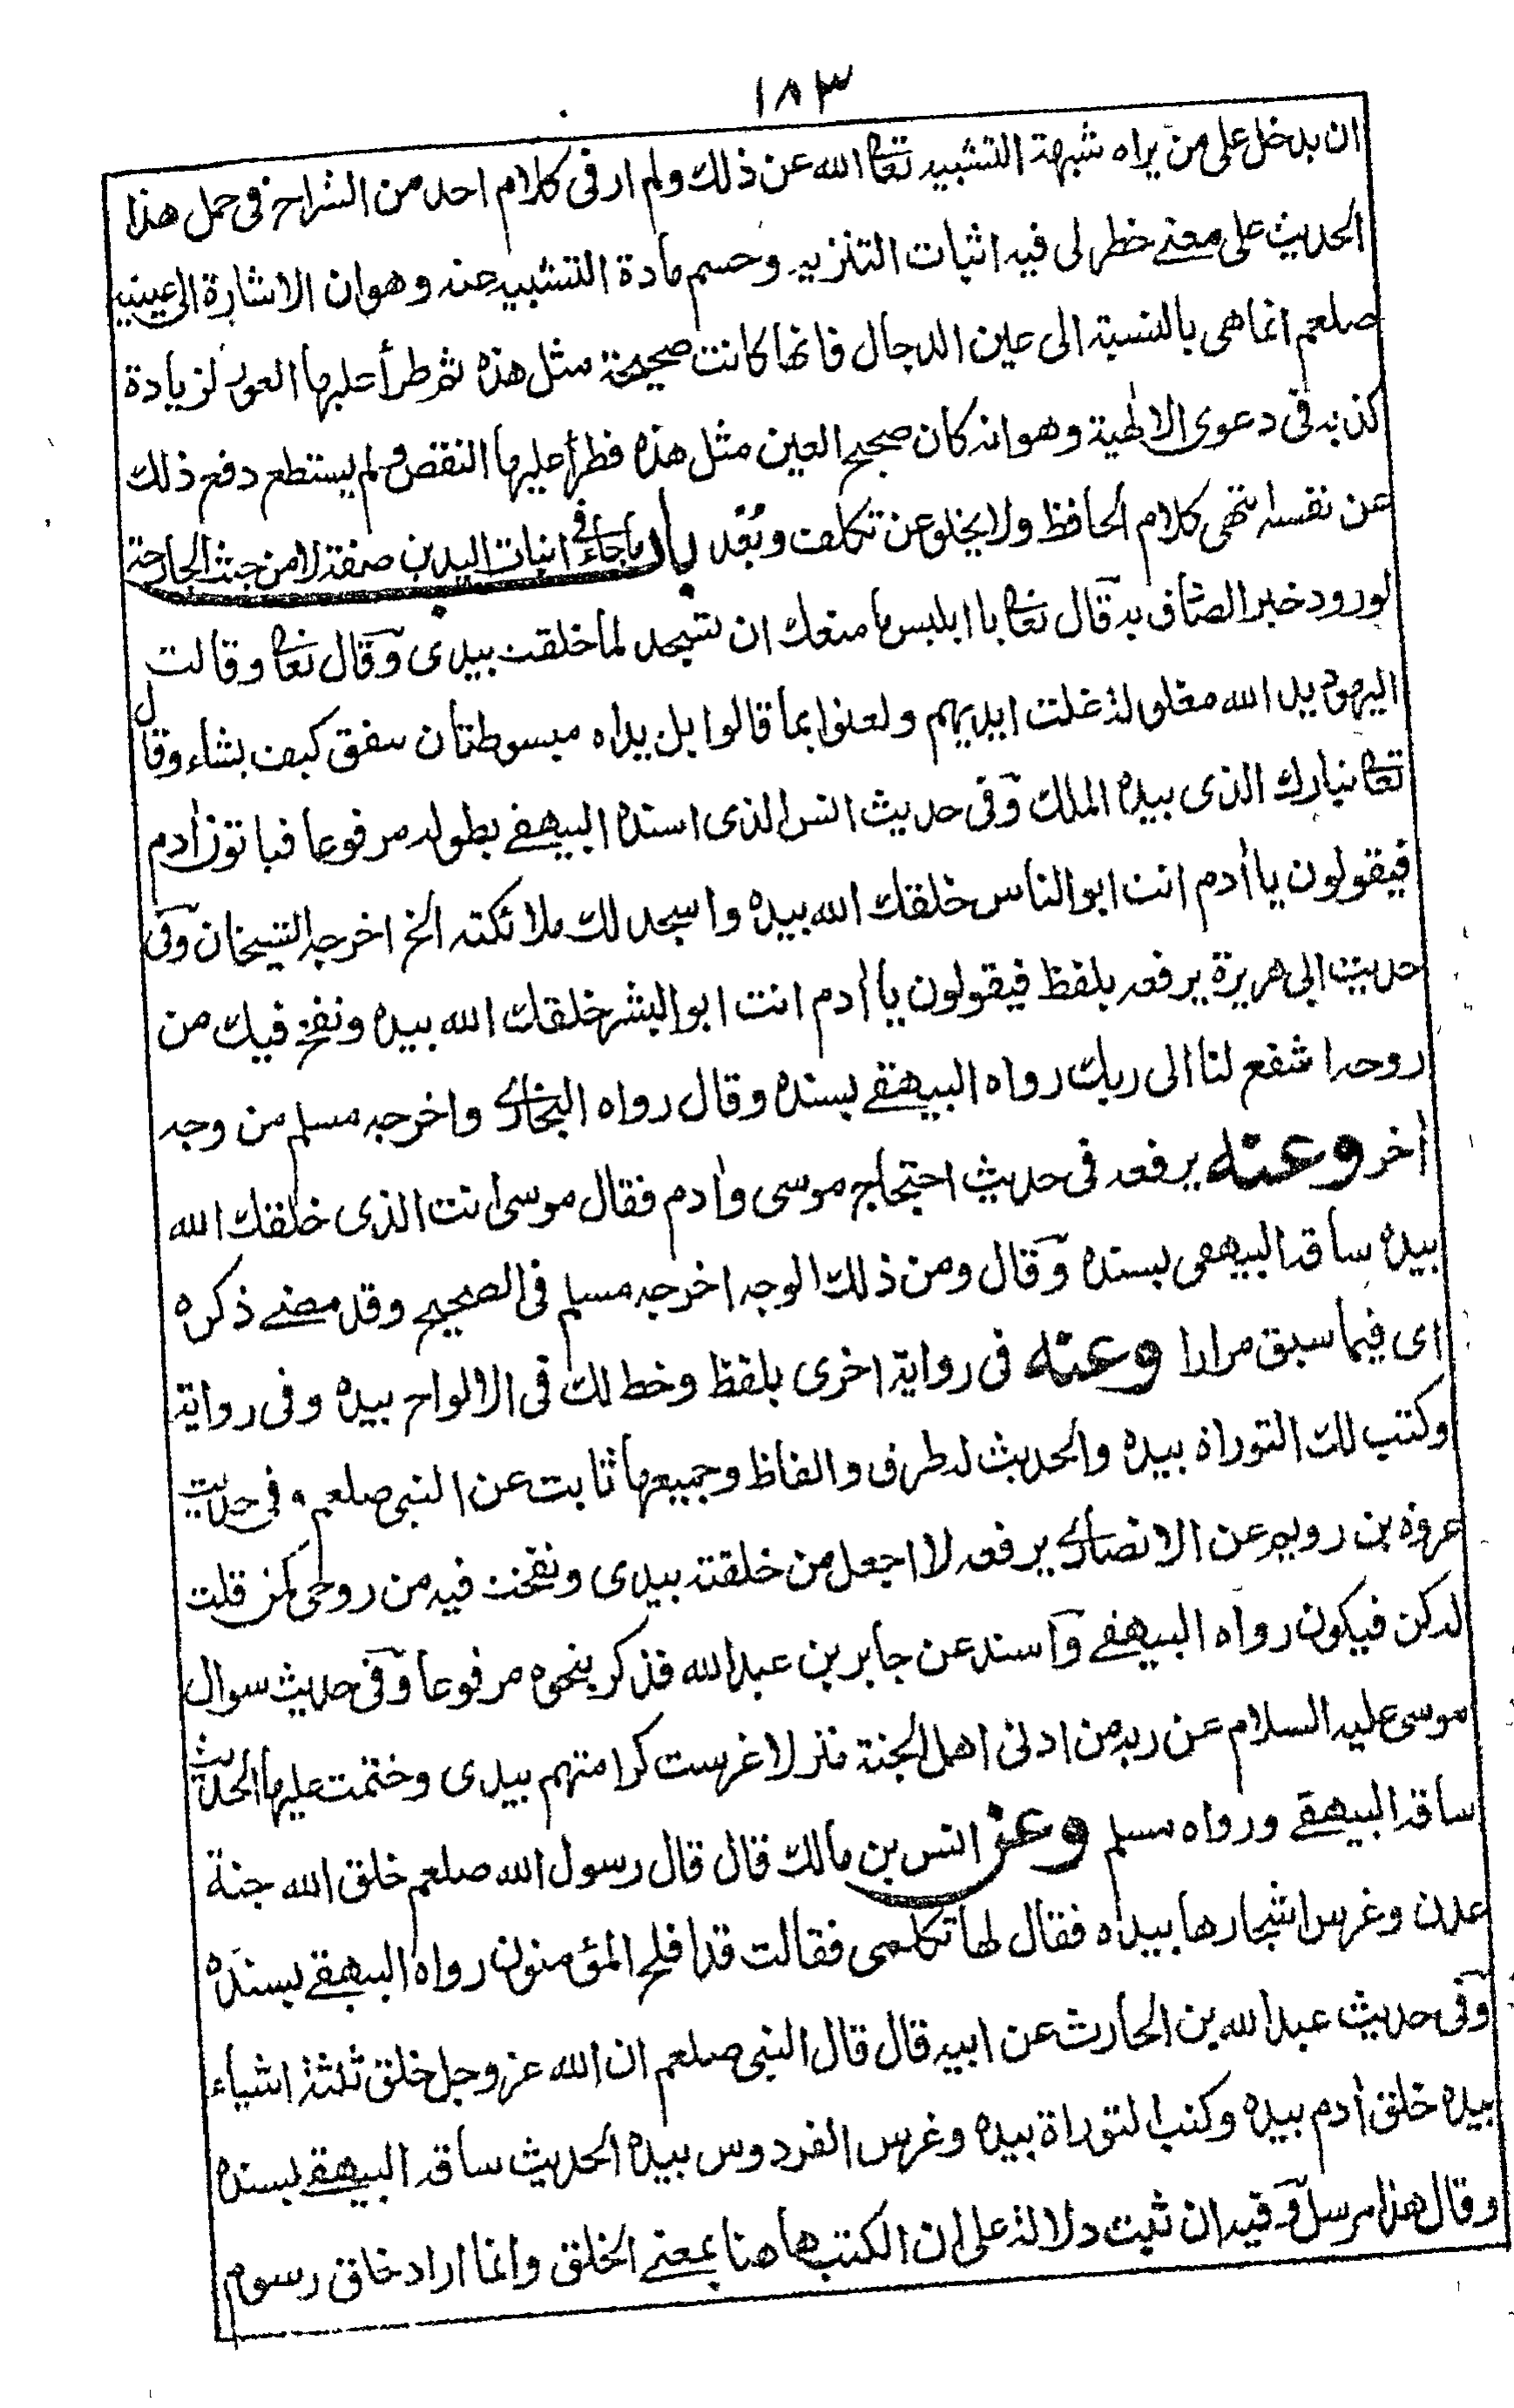 ١٨٣
ان يدخل على من يراه شبهة التشبيه تعالى الله عن ذلك ولم ار فى كلام احد من الشراح فى حمل هذا
الحديث على معنے خطر لى فيه اثبات التنزيه وحسم مادة التشبيه عنه وهو ان الاشارة الى عينيه
صلعم انما هى بالنسبة الى عين الدجال فانها كانت صحيحة مثل هذه ثم طرأ عليها العور لزيادة
كذبه فى دعوى الالٰهية وهو انه كان صحيح العين مثل هذه فطرأ عليها النقص ولم يستطع دفع ذلك
عن نفسه انتهى كلام الحافظ ولا يخلو عن تكلف وبُعْد باب ما جاء فى اثبات اليدين صفة لا من حيث الجارحة
لورود خبر الصادق به قال تعالى يا ابليس ما منعك ان تسجد لما خلقت بيدى وقال تعالى وقالت
اليهود يد الله مغلولة غلت ايديهم ولعنوا بما قالوا بل يداه مبسوطتان ينفق كيف يشاء وقال
تعالى تبارك الذى بيده الملك وفى حديث انس الذى اسنده البيهقے بطوله مرفوعا فياتون اٰدم
فيقولون يا اٰدم انت ابو الناس خلقك الله بيده واسجد لك ملائكته الخ اخرجه الشيخان وفى
حديث ابى هريرة يرفعه بلفظ فيقولون يا اٰدم انت ابو البشر خلقك الله بيده ونفخ فيك من
روحه اشفع لنا الى ربك رواه البيهقے بسنده وقال رواه البخارى واخرجه مسلم من وجه
اٰخر وعنه يرفعه فى حديث احتجاج موسى واٰدم فقال موسى انت الذى خلقك الله
بيده ساقه البيهقى بسنده وقال ومن ذلك الوجه اخرجه مسلم فى الصحيح وقد مضے ذكره
اى فيما سبق مرارا وعنه فى رواية اخرى بلفظ وخط لك فى الالواح بيده وفى رواية
وكتب لك التوراة بيده والحديث له طرق والفاظ وجميعها ثابت عن النبى صلعم وفى حديث
عروة بن رويم عن الانصارى يرفعه لا اجعل من خلقته بيدى ونفخت فيه من روحى كمن قلت
له كن فيكون رواه البيهقے واسند عن جابر بن عبد الله فذكر بنحوه مرفوعا وفى حديث سوال
موسى عليه السلام عن ربه من ادنى اهل الجنة منزلا غرست كرامتهم بيدى وختمت عليها الحديث
ساقه البيهقے ورواه مسلم وعن انس بن مالك قال قال رسول الله صلعم خلق الله جنة
عدن وغرس اشجارها بيده فقال لها تكلمى فقالت قد افلح المؤمنون رواه البيهقے بسنده
وفى حديث عبد الله بن الحارث عن ابيه قال قال النبى صلعم ان الله عز وجل خلق ثلثة اشياء
بيده خلق اٰدم بيده وكتب التوراة بيده وغرس الفردوس بيده الحديث ساقه البيهقے بسنده
وقال هذا مرسل وفيه ان ثبت دلالة على ان الكتب هاهنا بمعنے الخلق وانما اراد خلق رسوم